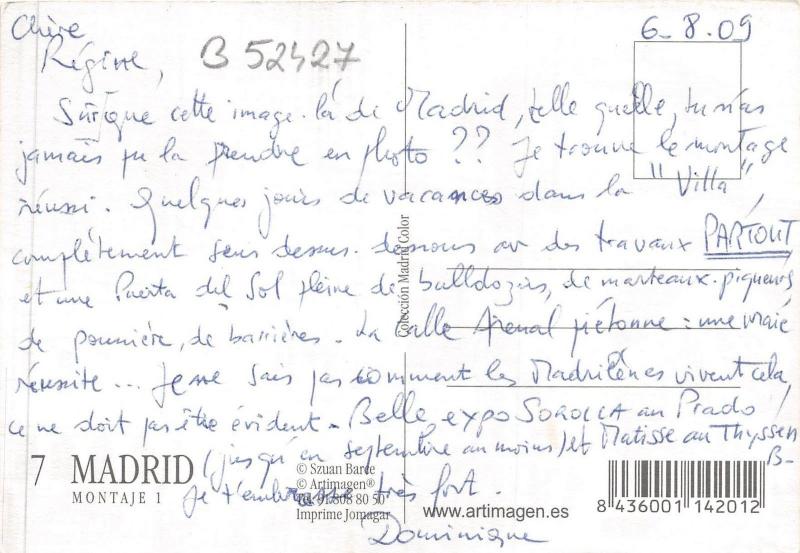 6-8.09
Chère
Régine,
B 52427
Sûr que cette image-là de Madrid, telle quelle, tu n'as
jamais pu la prendre en photo ?? Je trouve le montage
réussi. Quelques jours de vacances dans la "Villa",
complètement sens dessus-dessous av des travaux PARTOUT
et une Puerta del Sol pleine de bulldozers, de marteaux-piqueurs
de poussière, de barrières. La Calle Arenal piétonne : une vraie
réussite... Je ne sais pas comment les Madrilènes vivent cela,
ce ne doit pas être évident. Belle expo SOROLLA au Prado
(jusqu'en septembre au moins) et Matisse au Thyssen
B-
Je t'embrasse très fort.
Dominique
Colección Madrid Color
7 MADRID
MONTAJE 1
© Szuan Barce
© Artimagen®
Tel. 91 808 80 50
Imprime Jomagar
www.artimagen.es
8 436001 142012